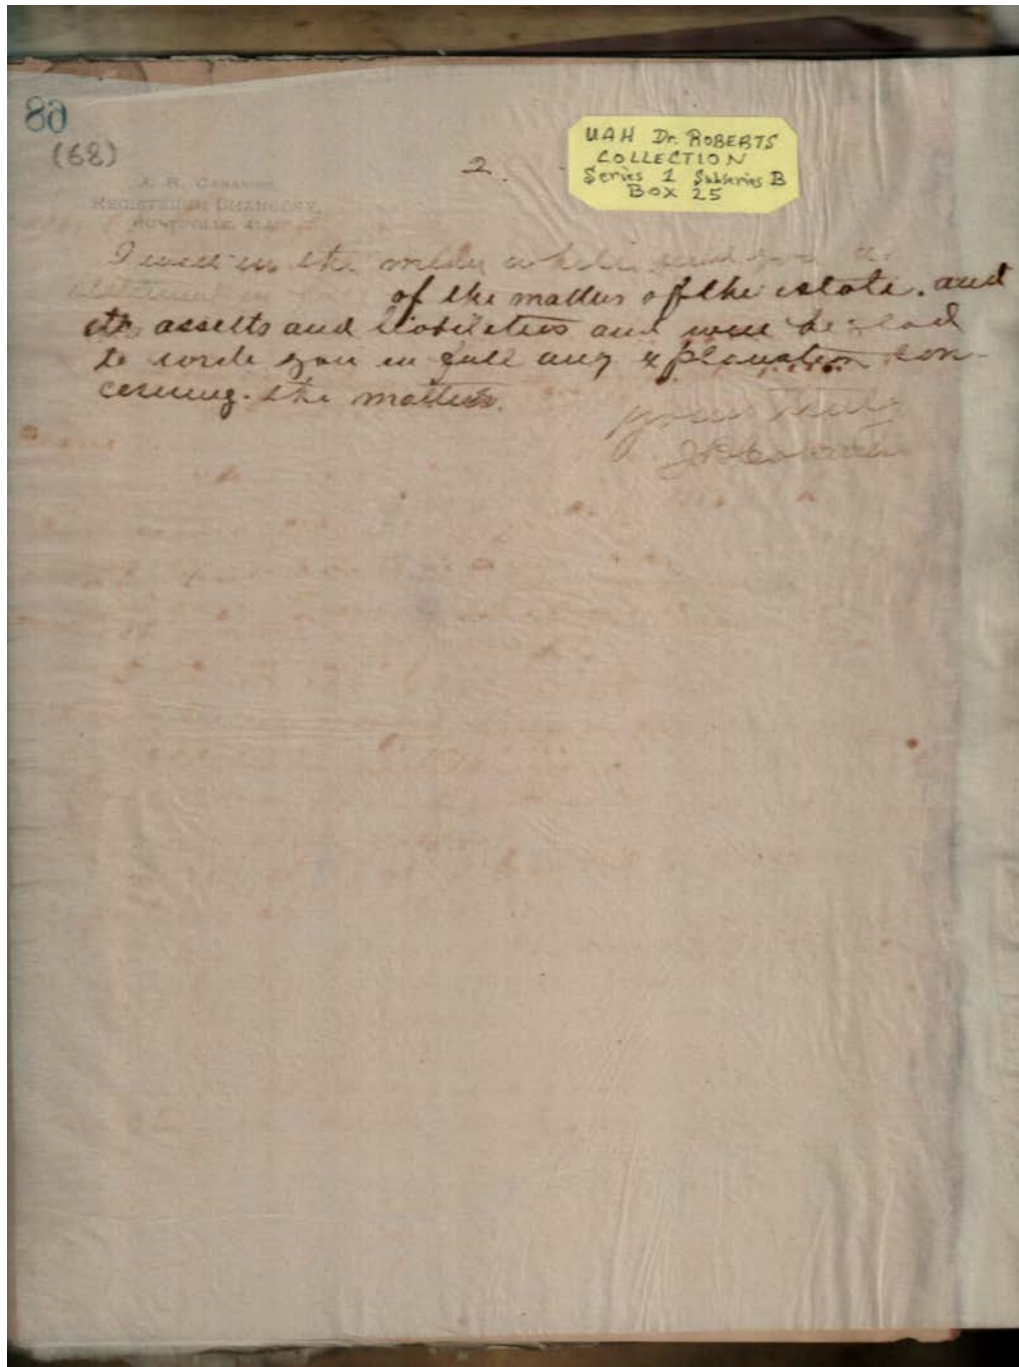 86
(68)
2.
UAH Dr. ROBERTS
COLLECTION
Series 1 Subseries B
Box 25
REGISTER IN CHANCERY,
HUNTSVILLE, ALA.
I will in the send you a
of the matters of the estate. and
its assetts and liabilities and will be glad
to write you in full any explanation con-
cerning the matters.
yours truly